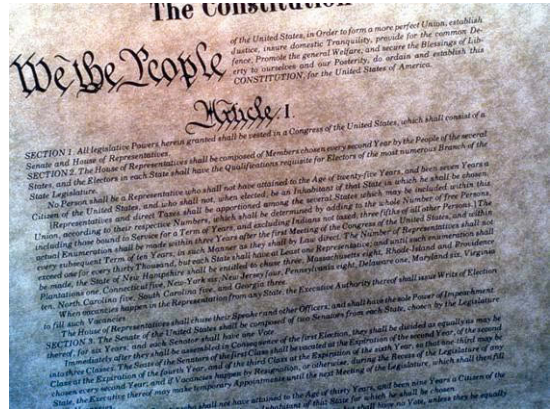 The Constitution
We the People
of the United States, in Order to form a more perfect Union, establish
Justice, insure domestic Tranquility, provide for the common De-
fence, Promote the general Welfare, and secure the Blessings of Lib-
erty to ourselves and our Posterity, do ordain and establish this
CONSTITUTION, for the United States of America.
Article I.
SECTION 1. All legislative Powers herein granted shall be vested in a Congress of the United States, which shall consist of a
Senate and House of Representatives.
SECTION 2. The House of Representatives shall be composed of Members chosen every second Year by the People of the several
States, and the Electors in each State shall have the Qualifications requisite for Electors of the most numerous Branch of the
State Legislature.
No Person shall be a Representative who shall not have attained to the Age of twenty-five Years, and been seven Years a
Citizen of the United States, and who shall not, when elected, be an Inhabitant of that State in which he shall be chosen.
[Representatives and direct Taxes shall be apportioned among the several States which may be included within this
Union, according to their respective Numbers, which shall be determined by adding to the whole Number of free Persons,
including those bound to Service for a Term of Years, and excluding Indians not taxed, three fifths of all other Persons.] The
actual Enumeration shall be made within three Years after the first Meeting of the Congress of the United States, and within
every subsequent Term of ten Years, in such Manner as they shall by Law direct. The Number of Representatives shall not
exceed one for every thirty Thousand, but each State shall have at Least one Representative; and until such enumeration shall
be made, the State of New Hampshire shall be entitled to chuse three, Massachusetts eight, Rhode Island and Providence
Plantations one, Connecticut five, New-York six, New Jersey four, Pennsylvania eight, Delaware one, Maryland six, Virginia
ten, North Carolina five, South Carolina five, and Georgia three.
When vacancies happen in the Representation from any State, the Executive Authority thereof shall issue Writs of Election
to fill such Vacancies.
The House of Representatives shall chuse their Speaker and other Officers; and shall have the sole Power of Impeachment.
SECTION 3. The Senate of the United States shall be composed of two Senators from each State, chosen by the Legislature
thereof, for six Years; and each Senator shall have one Vote.
Immediately after they shall be assembled in Consequence of the first Election, they shall be divided as equally as may be
into three Classes. The Seats of the Senators of the first Class shall be vacated at the Expiration of the second Year, of the second
Class at the Expiration of the fourth Year, and of the third Class at the Expiration of the sixth Year, so that one third may be
chosen every second Year; and if Vacancies happen by Resignation, or otherwise, during the Recess of the Legislature of any
State, the Executive thereof may make temporary Appointments until the next Meeting of the Legislature, which shall then fill
who shall not have attained to the Age of thirty Years, and been nine Years a Citizen of the
Inhabitant of that State for which he shall be chosen.
shall have no Vote, unless they be equally